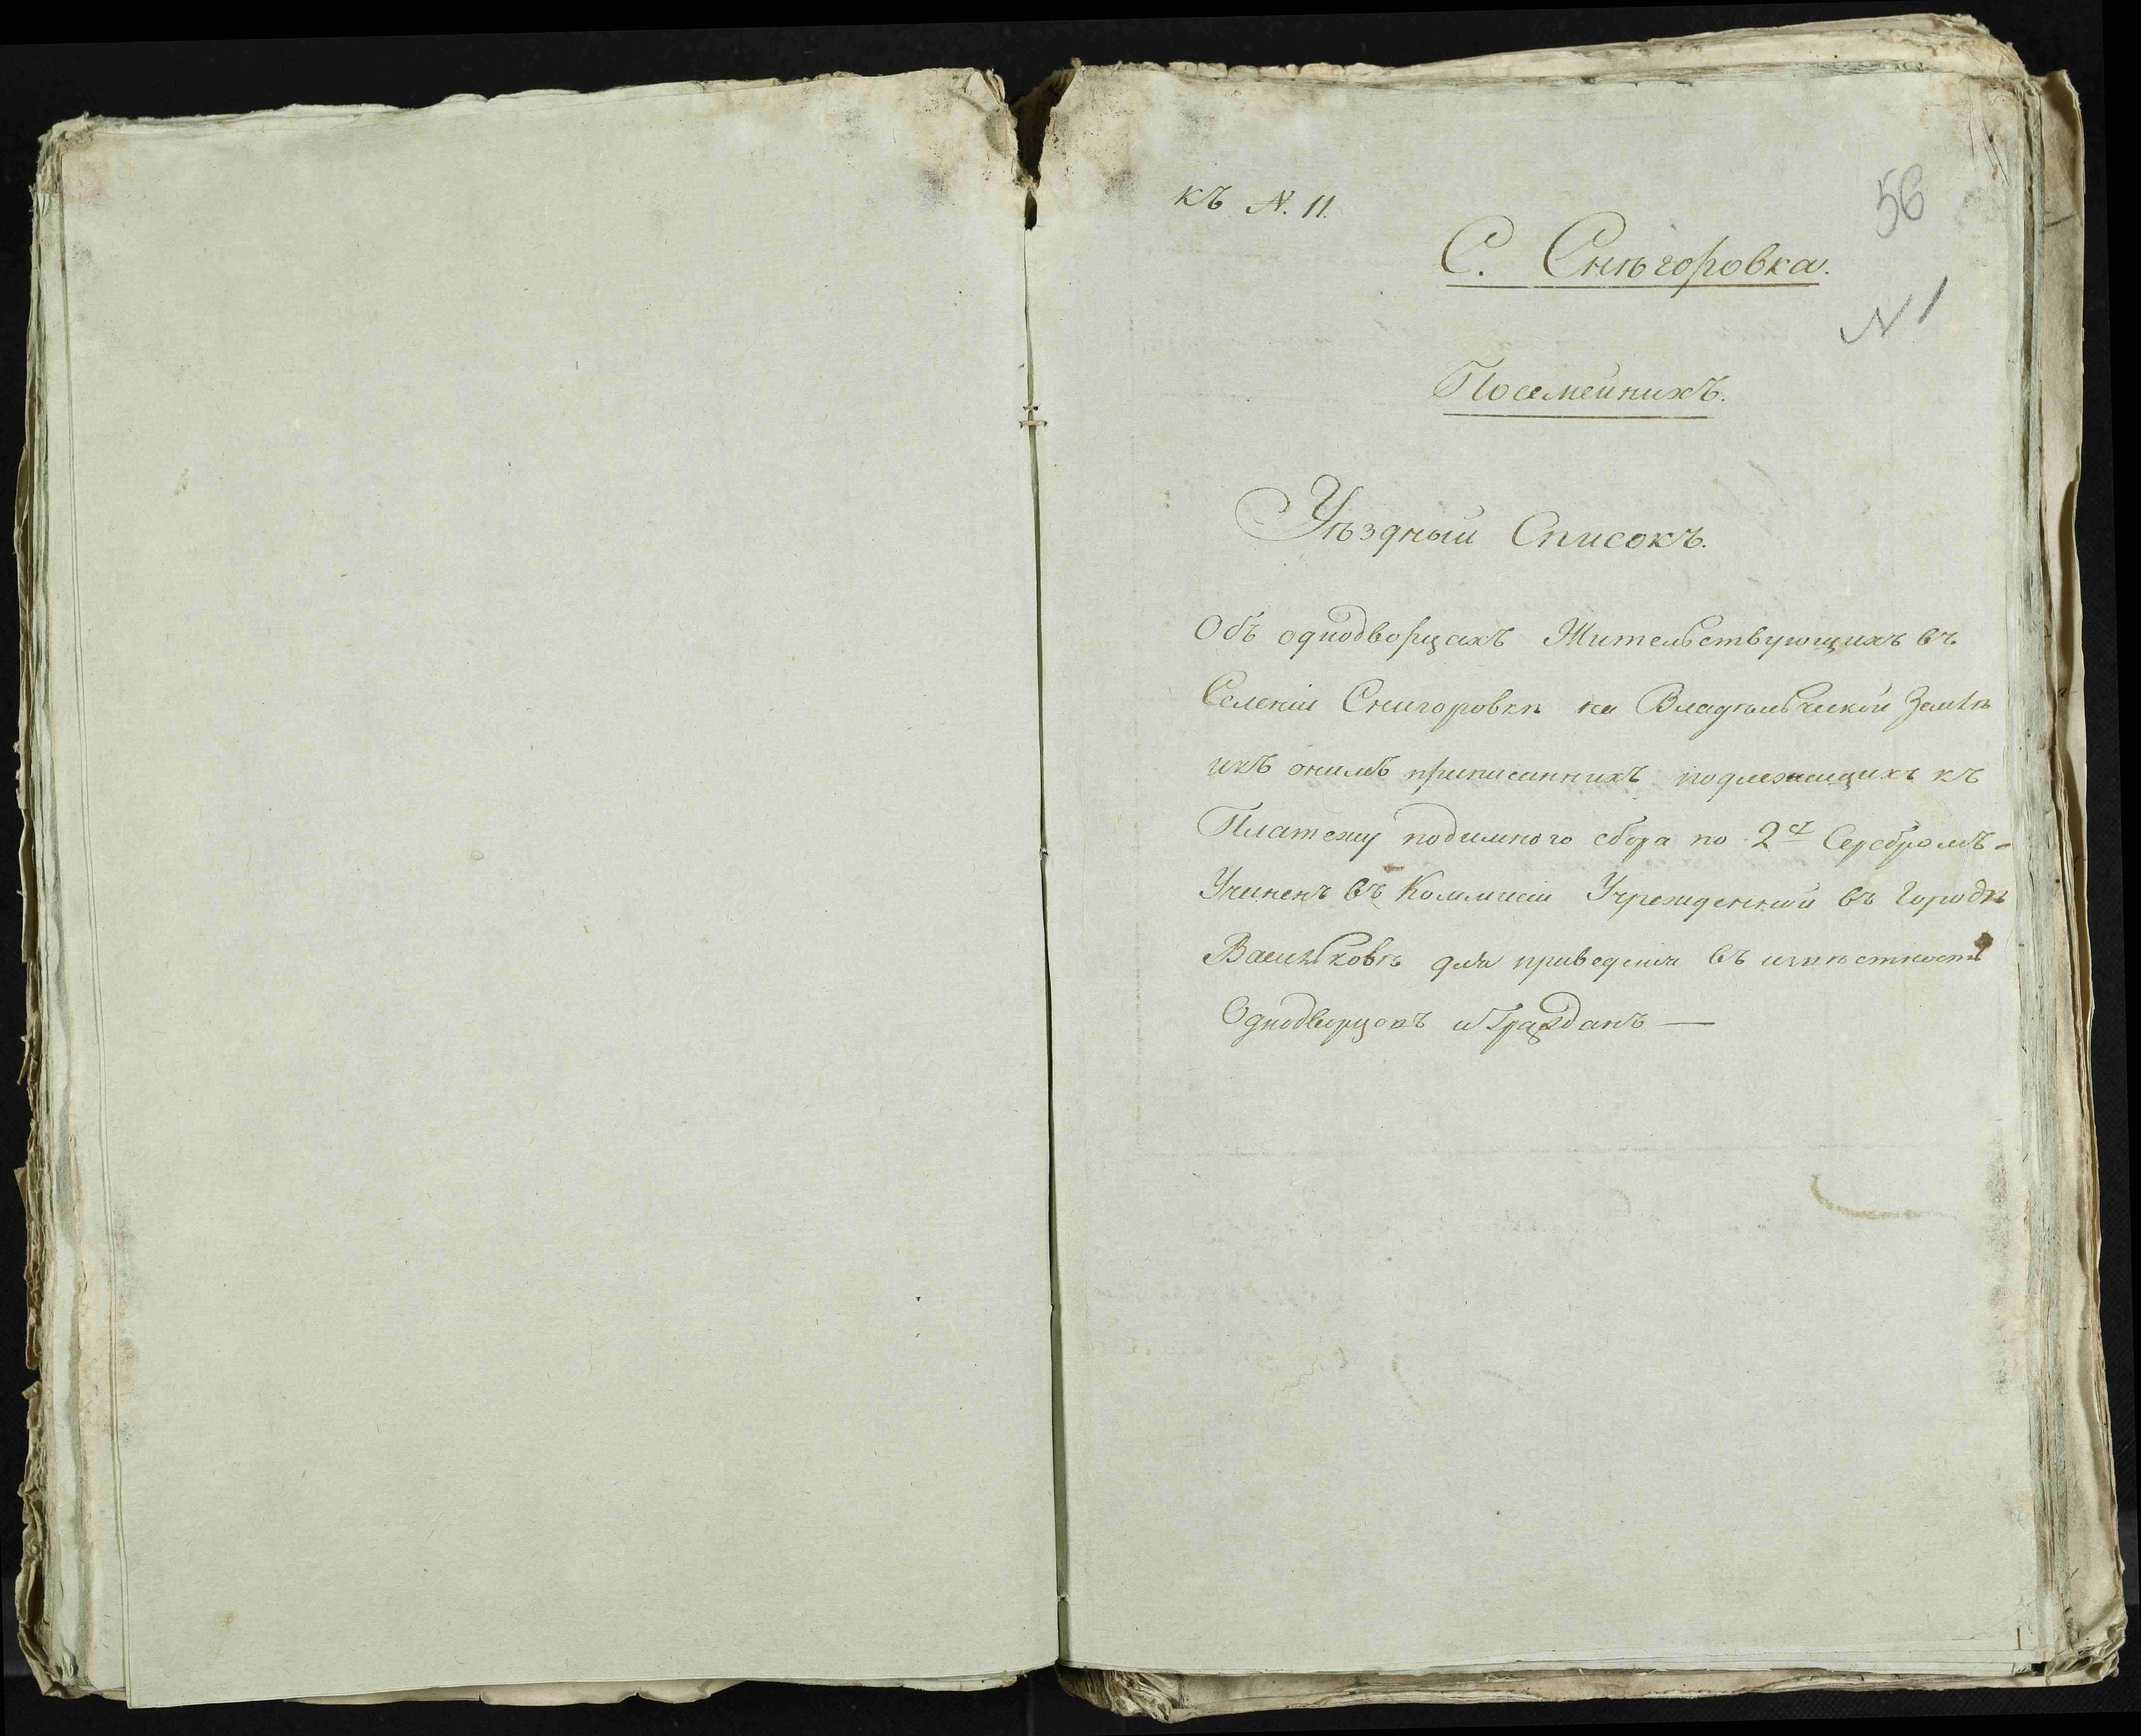 къ N. 11.
56
С. Снѣгоровка.
N 1
Посемейнихъ.
Уѣздный Списокъ.
Объ однодворцахъ Жительствующихъ въ
Селеніи Снигоровкѣ на Владѣльческой Землѣ
икъ онимъ приписаннихъ подлежащихъ къ
Платежу подимного сбора по 2 Серебромъ -
Учиненъ въ Коммисіи Учрежденной въ Городѣ
Васильковѣ для приведенія въ
Однодворцовъ и Гражданъ —